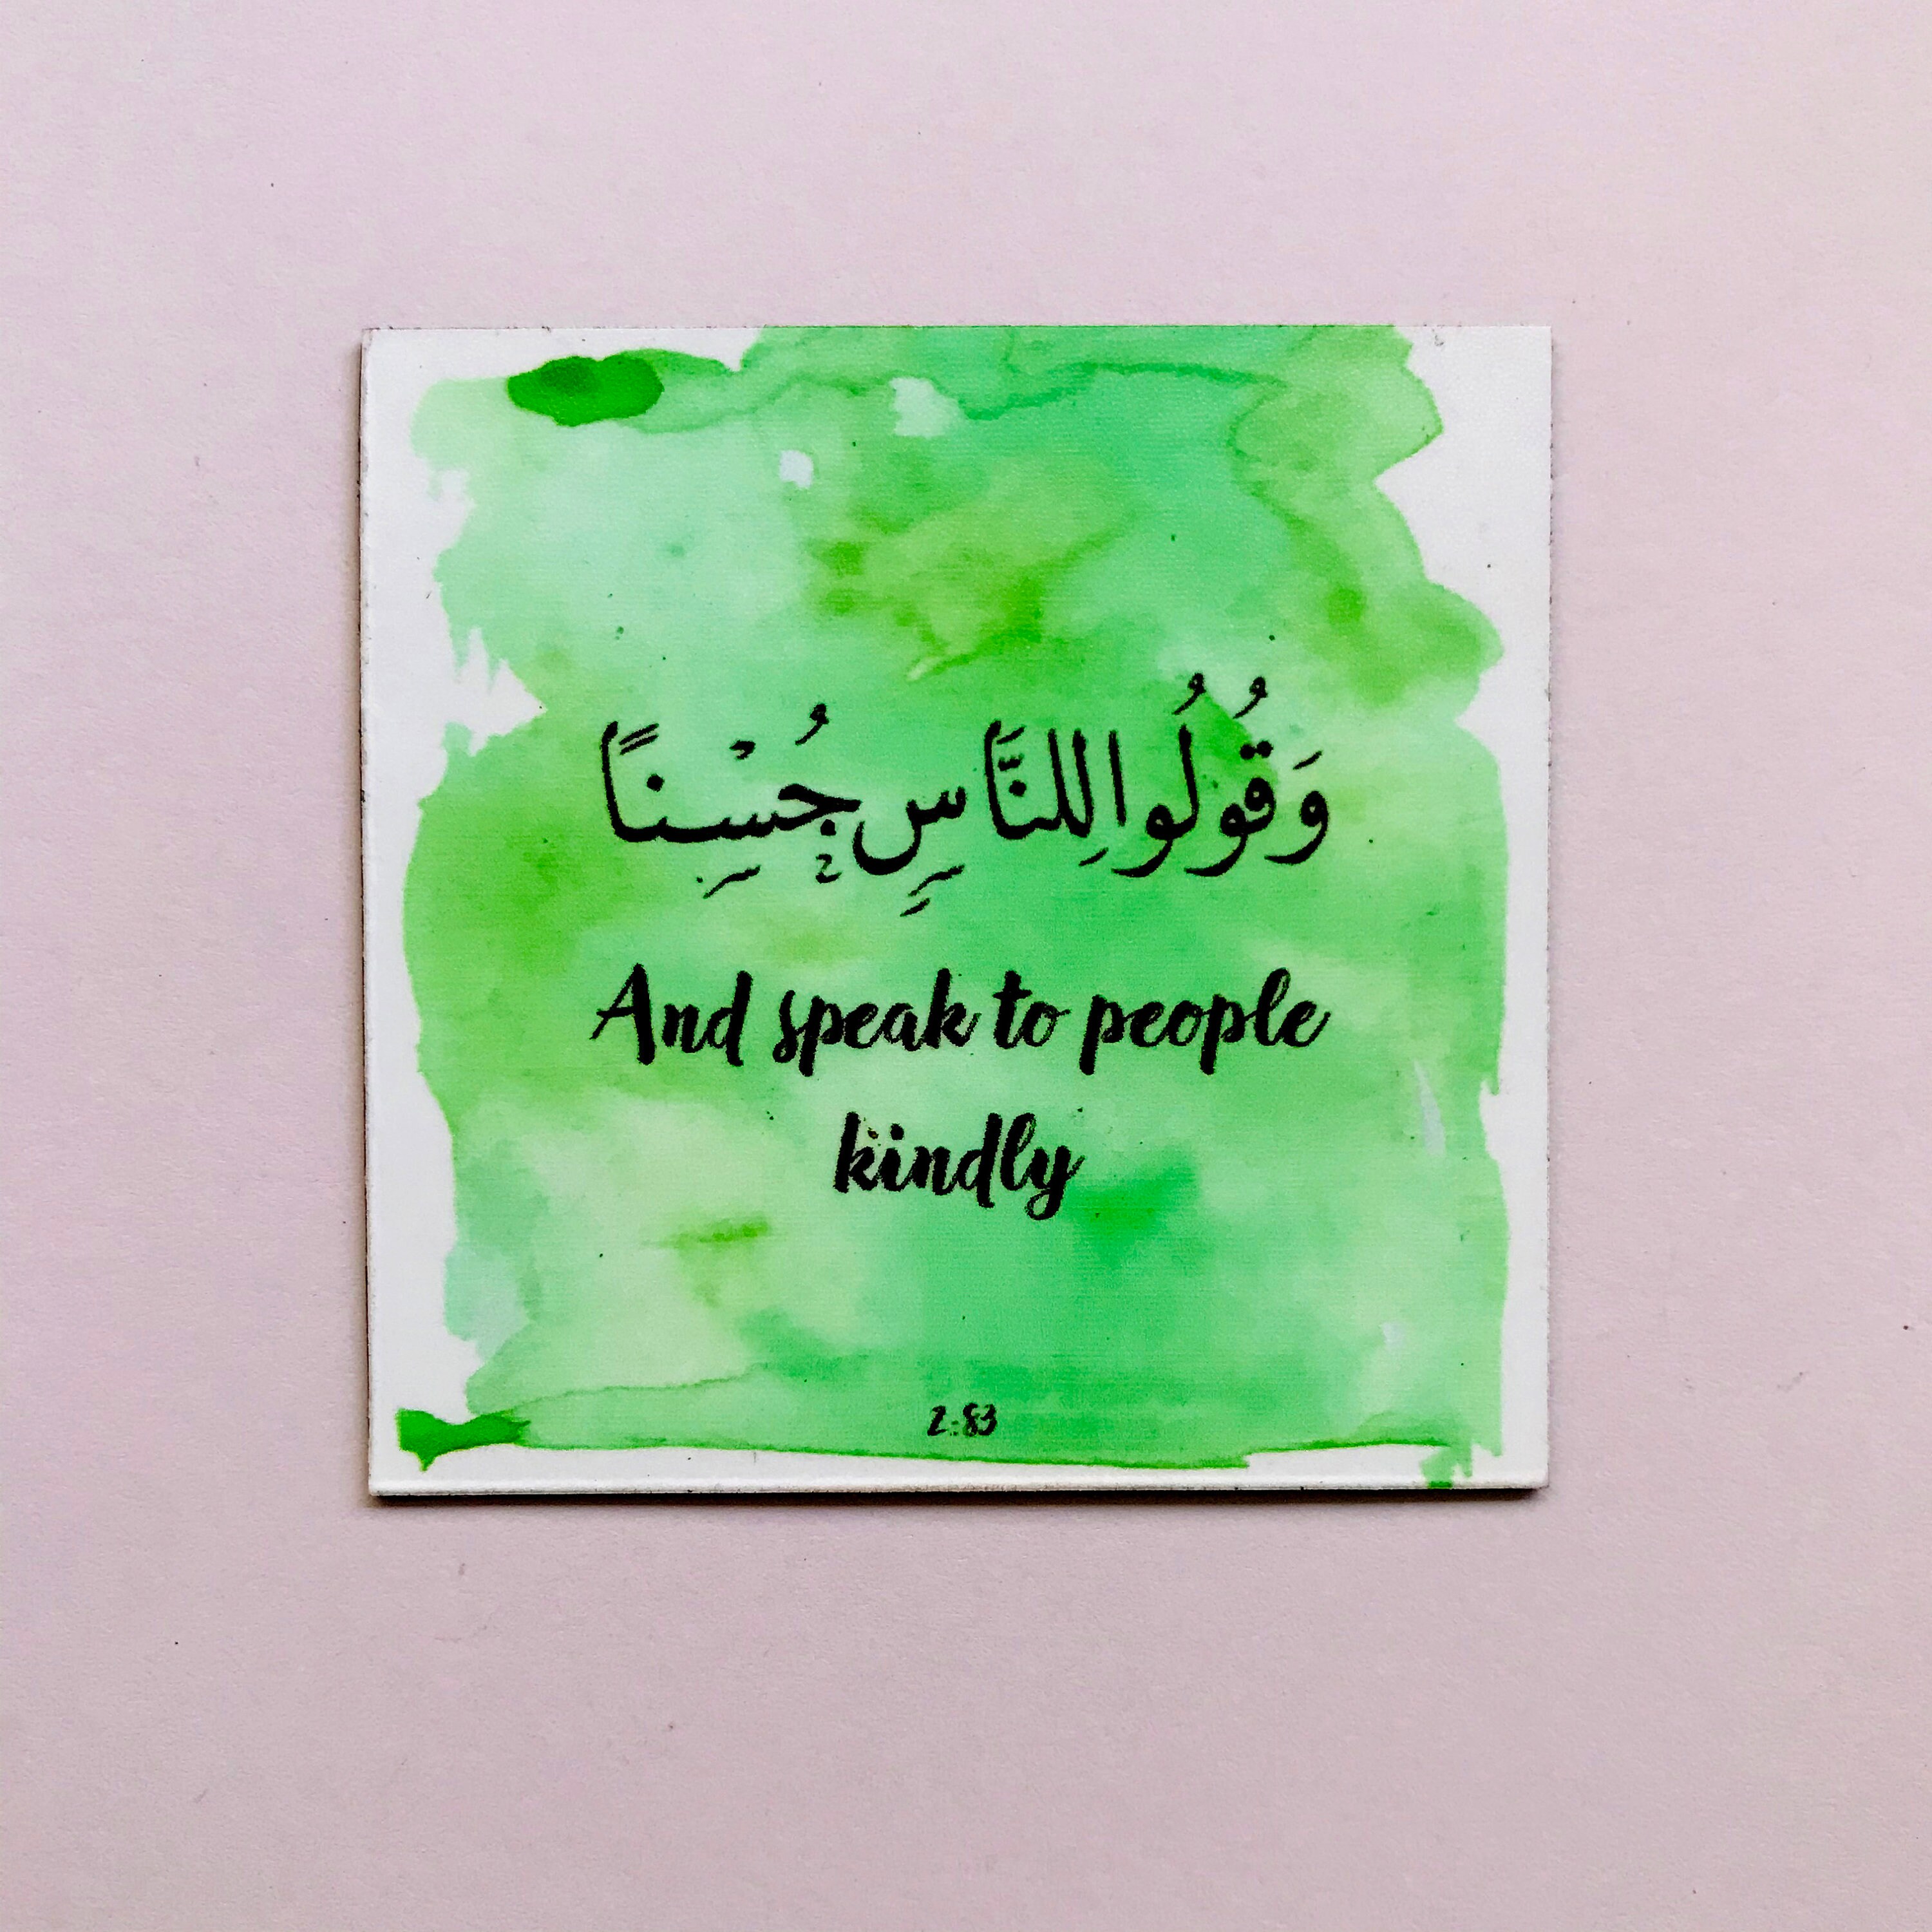 وَقُولُوا لِلنَّاسِ حُسْنًا
And speak to people
kindly
2:83